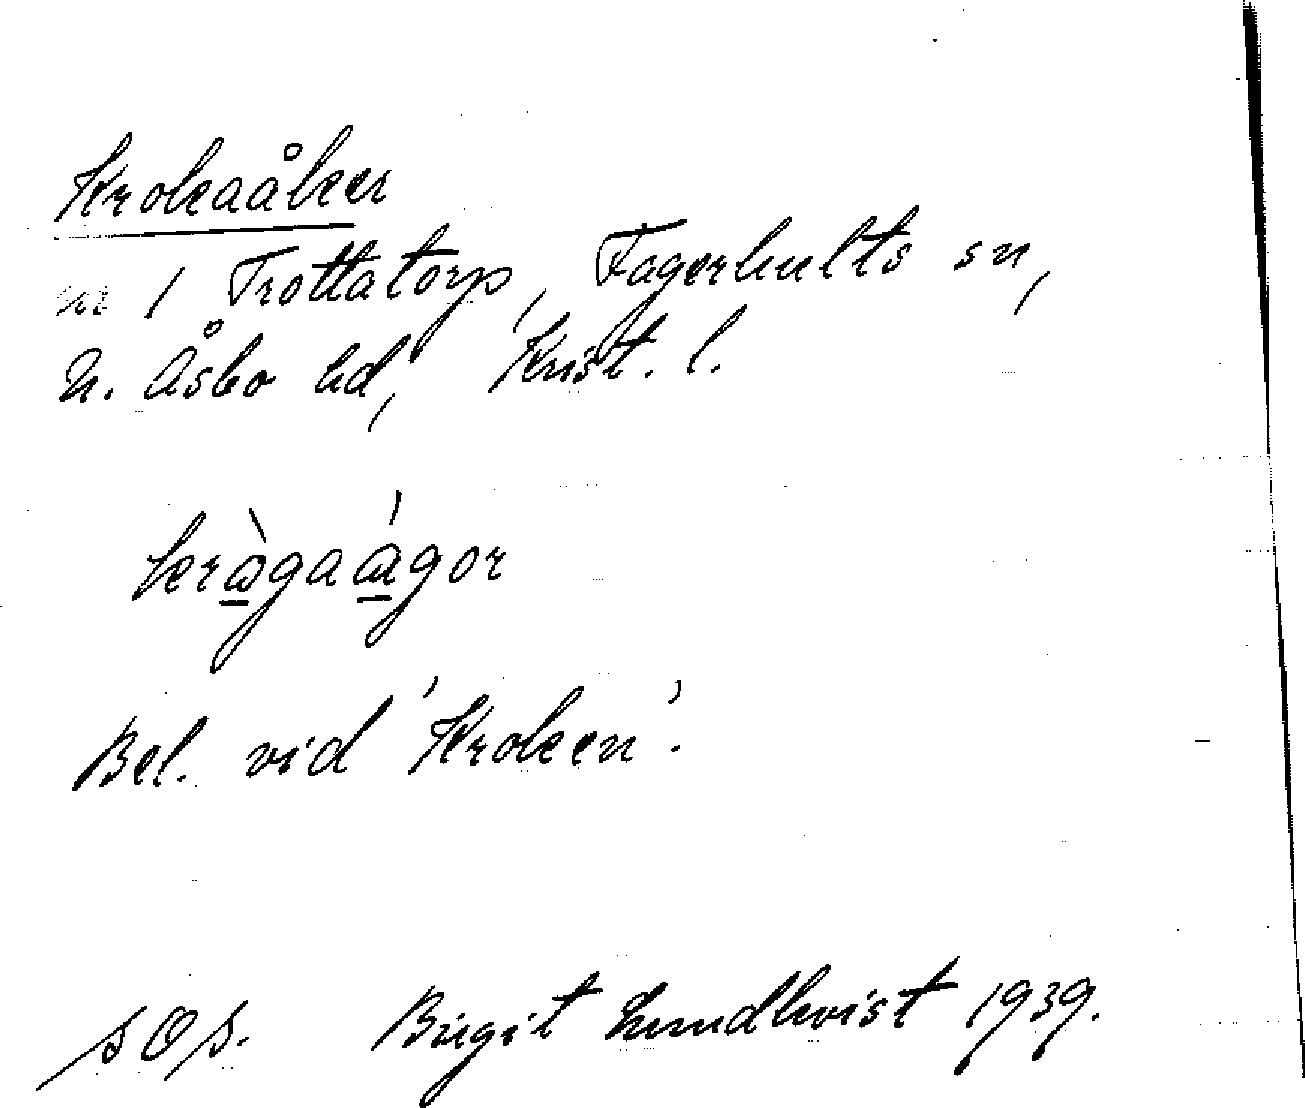 Krokaåker
nr 1 Trottatorp, Fagerhults sn,
N. Åsbo hd, Krist. l.
kràgaágor
Bel. vid 'Kroken'.
SOS. Birgit Lundkvist 1939.